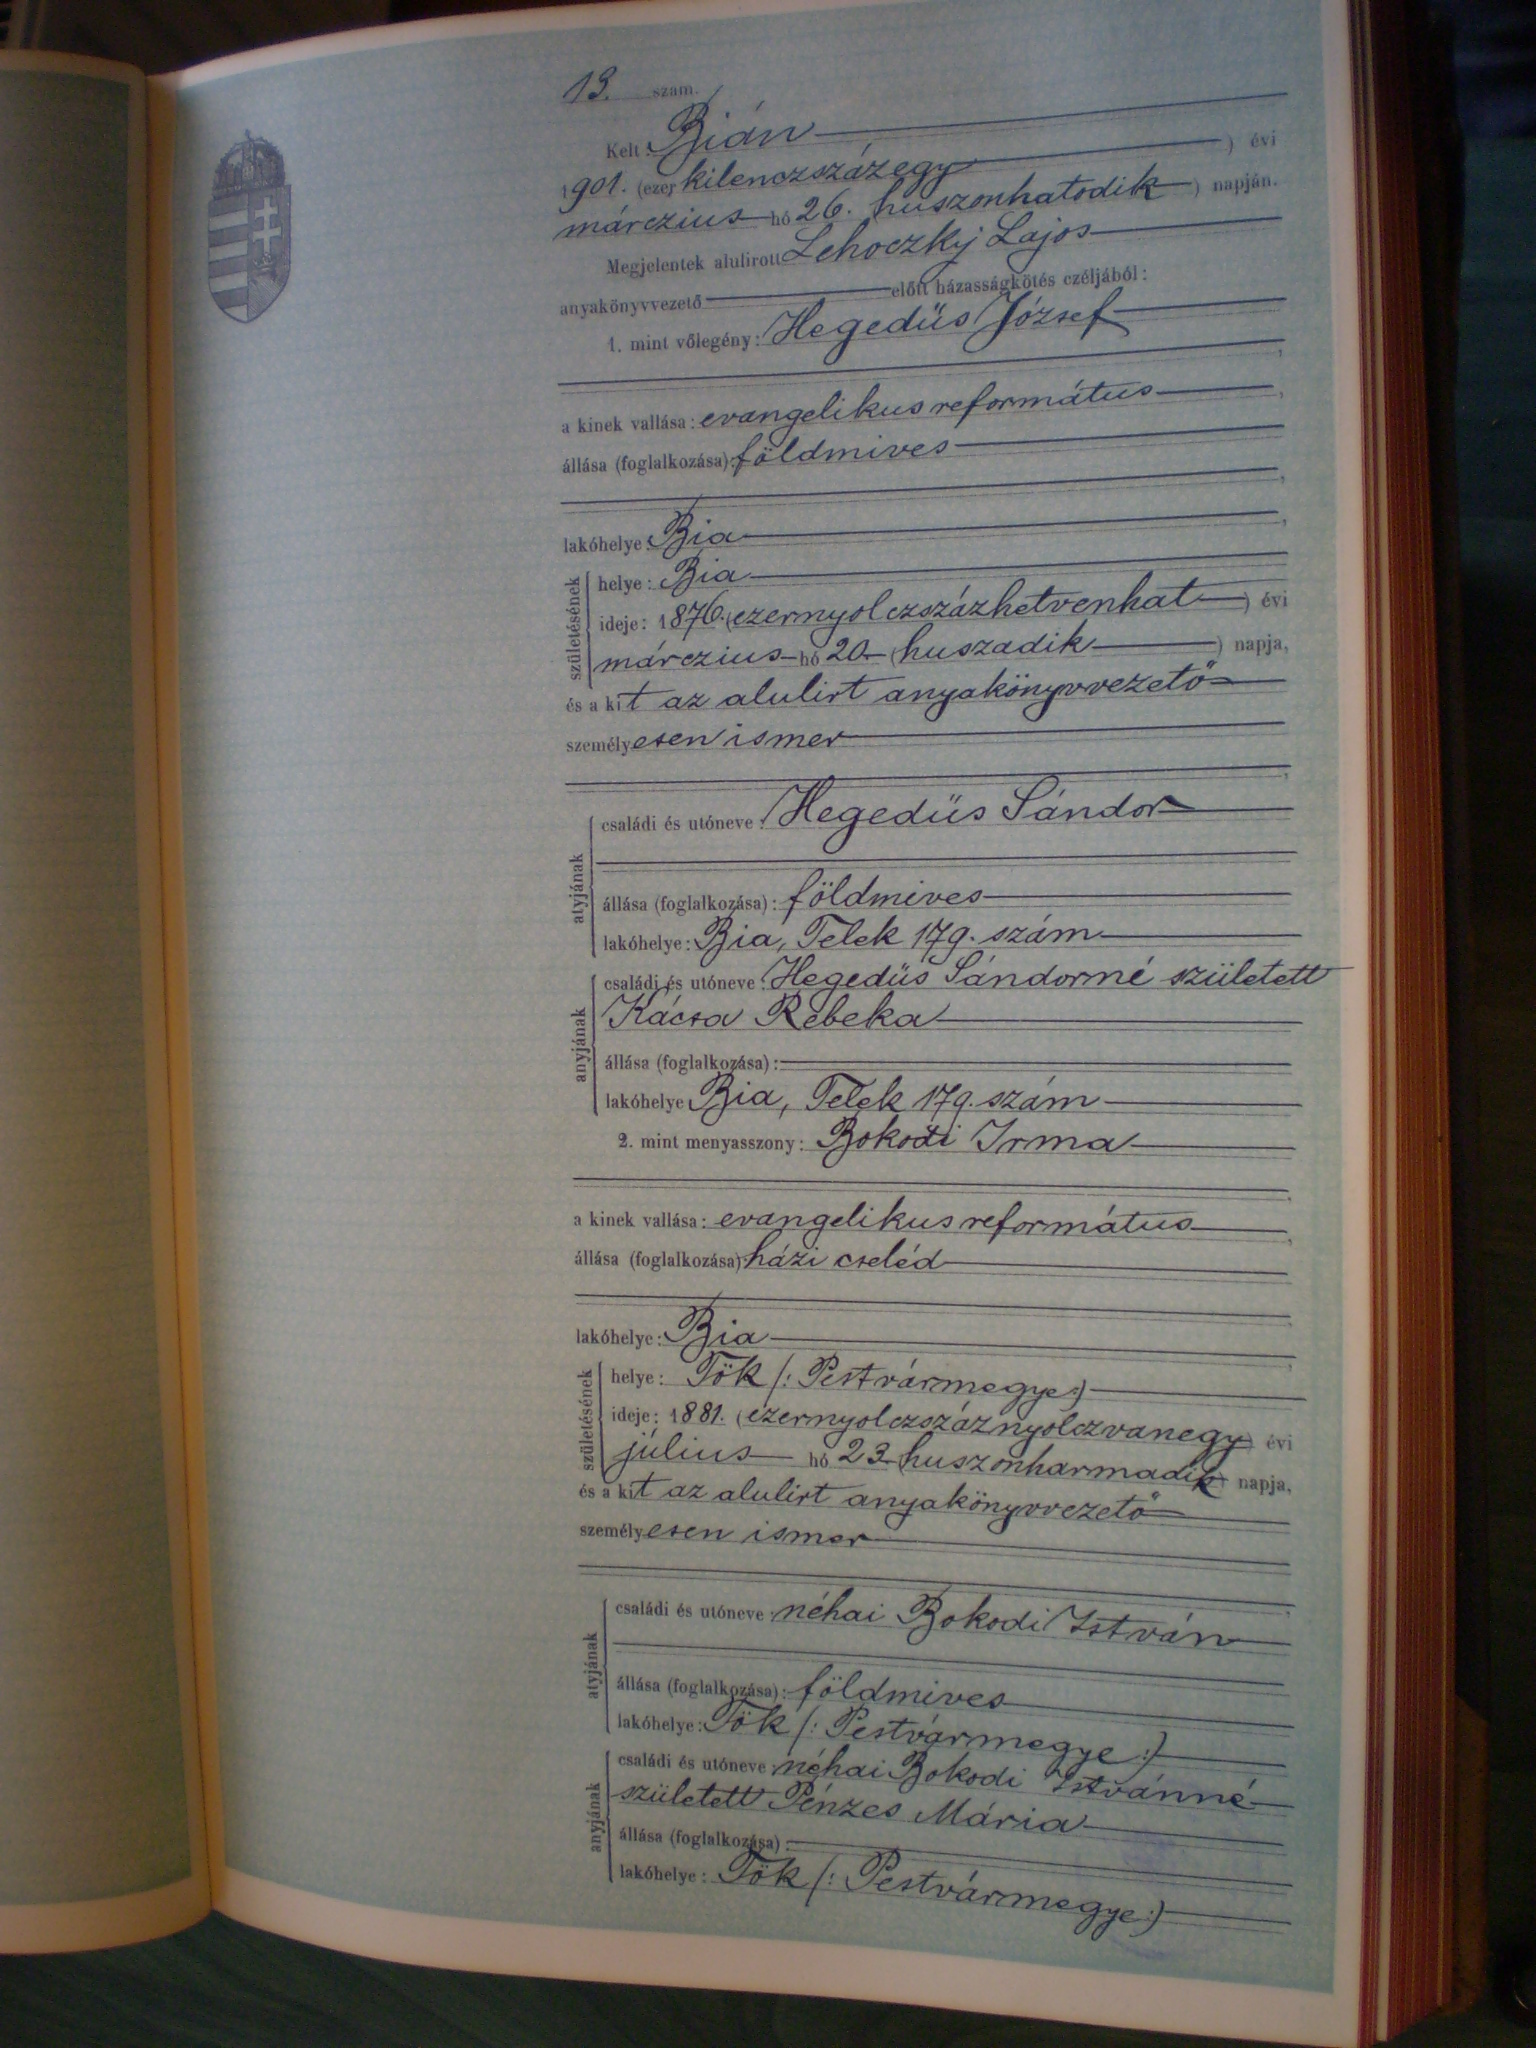 13. szám.
Kelt: Bián
1901. (ezer kilenczszázegy) évi
márczius hó 26. huszonhatodik) napján.
Megjelentek alulirott Lehoczky Lajos
anyakönyvvezető előtt házasságkötés czéljából:
1. mint vőlegény: Hegedüs József
a kinek vallása: evangelikus református
állása (foglalkozása): földmives
lakóhelye: Bia
születésének
helye: Bia
ideje: 1876. (ezernyolczszázhetvenhat) évi
márczius hó 20 (huszadik) napja,
és a kit az alulirt anyakönyvvezető
személyesen ismer
atyjának
családi és utóneve: Hegedüs Sándor
állása (foglalkozása): földmives
lakóhelye: Bia, Telek 179. szám
anyjának
családi és utóneve: Hegedüs Sándorné született
Kácsa Rebeka
állása (foglalkozása):
lakóhelye Bia, Telek 179. szám
2. mint menyasszony: Bokodi Irma
a kinek vallása: evangelikus református
állása (foglalkozása): házi cseléd
lakóhelye: Bia
születésének
helye: Tök (: Pestvármegye:)
ideje: 1881. (ezernyolczszáznyolczvanegy) évi
július hó 23 (huszonharmadik) napja,
és a kit az alulirt anyakönyvvezető
személyesen ismer
atyjának
családi és utóneve: néhai Bokodi István
állása (foglalkozása): földmives
lakóhelye: Tök (: Pestvármegye:)
anyjának
családi és utóneve: néhai Bokodi Istvánné
született Pénzes Mária
állása (foglalkozása):
lakóhelye: Tök (: Pestvármegye:)